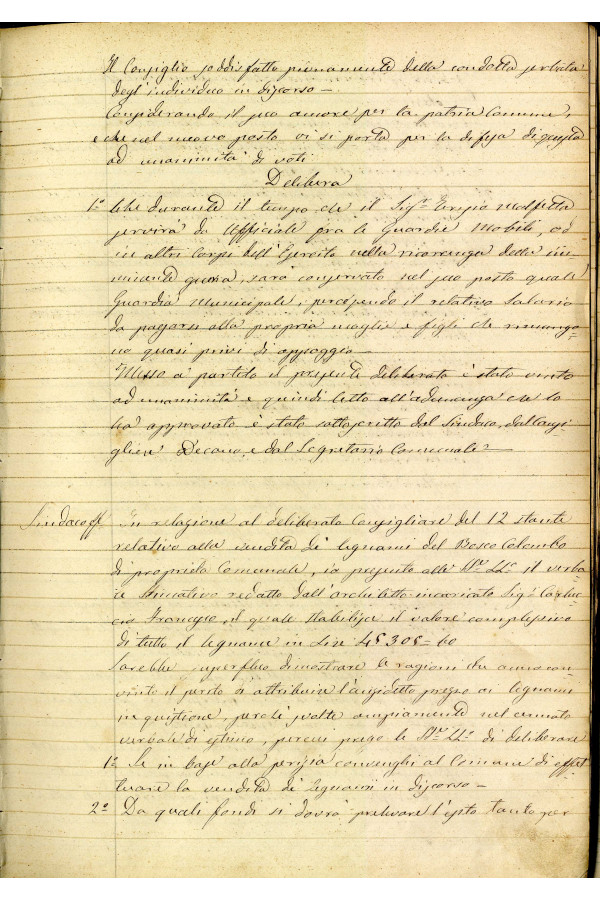 Il Consiglio soddisfatto pienamente della condotta serbata
degl'individuo in discorso —
Considerando il suo amore per la patria Comune,
e che nel nuovo posto vi si porta per la difesa di questa
ad unanimità di voti
Delibera
1° Che durante il tempo che il Sigr.
servirà da Ufficiale fra le Guardie Mobili, od
in altri Corpi dell'Esercito nella ricorrenza della im-
minente guerra, sarà conservato nel suo posto quale
Guardia Municipale, percependo il relativo Salario
da pagarsi alla propria moglie e figli che rimango-
no quasi privi di appoggio —
Messo a partito il presente deliberato è stato vinto
ad unanimità e quindi letto all'adunanza che lo
ha approvato è stato sottoscritto dal Sindaco, dal Consi-
gliere Decano, e dal Segretario Comunale —
Sindaco ff. In relazione al deliberato Consigliare del 12 stante
relativo alla vendita dei legnami del Bosco Colombo
di proprietà Comunale, io presento alle il verba-
le stimativo redatto dall'architetto incaricato Sigr.
Francesco, il quale stabilisce il valore complessivo
di tutto il legname in Lire 45305=60
Sarebbe superfluo dimostrare le ragioni che annno con-
vinto il perito di attribuire l'anzidetto prezzo ai legnami
in quistione, perchè svolte ampiamente nel cennato
verbale di estimo, perciò prego le di deliberare
1° Se in base alla perizia convenghi al Comune di effet-
tuare la vendita dei legnami in discorso —
2° Da quali fondi si dovrà prelevare l'esito tanto per